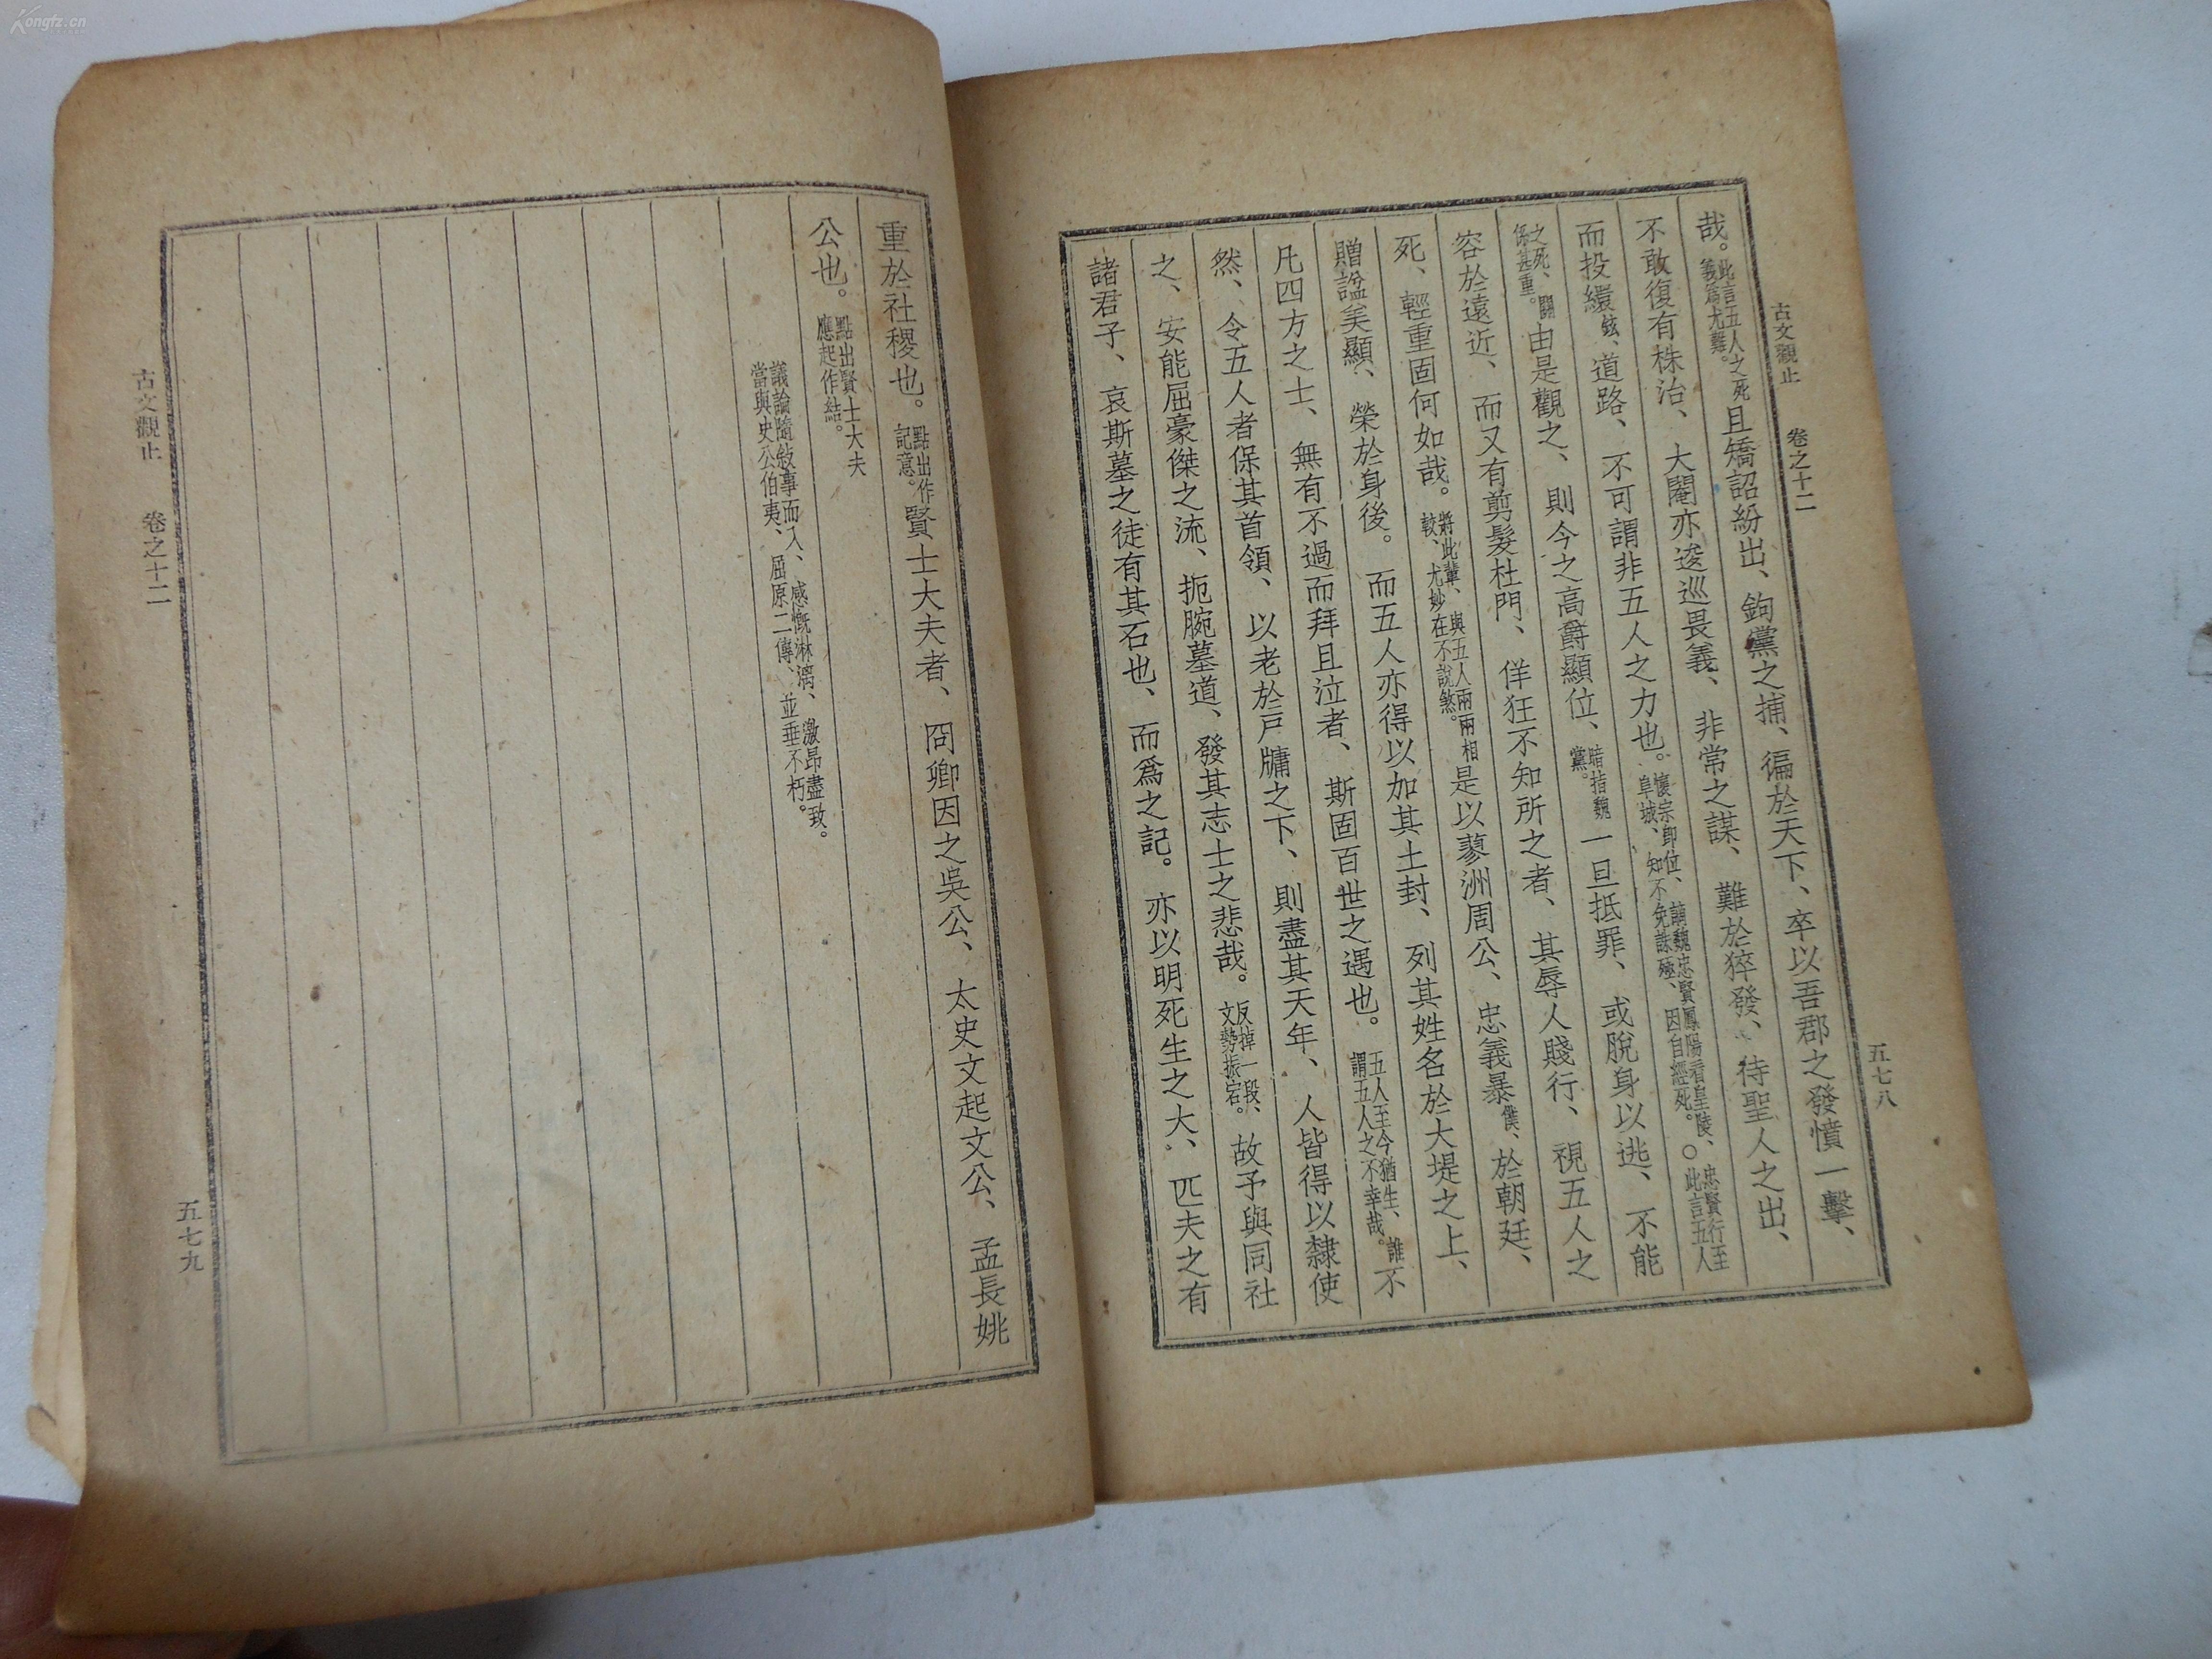 Kongfz.cn
古文觀止 卷之十二 五七八
哉。此言五人之死義爲尤難。且矯詔紛出、鉤黨之捕、徧於天下、卒以吾郡之發憤一擊、
不敢復有株治、大閹亦逡巡畏義、非常之謀、難於猝發、待聖人之出、
而投繯絃、道路、不可謂非五人之力也。懷宗卽位、謫魏忠賢鳳陽看皇陵、忠賢行至阜城、知不免誅殛、因自經死。○此言五人
之死、關係甚重。由是觀之、則今之高爵顯位、暗指魏黨。一旦抵罪、或脫身以逃、不能
容於遠近、而又有剪髮杜門、佯狂不知所之者、其辱人賤行、視五人之
死、輕重固何如哉。將此輩、與五人兩兩相較、尤妙在不說煞。是以蓼洲周公、忠義暴僕、於朝廷、
贈諡美顯、榮於身後。而五人亦得以加其土封、列其姓名於大堤之上、
凡四方之士、無有不過而拜且泣者、斯固百世之遇也。五人至今猶生、誰謂五人之不幸哉。不
然、令五人者保其首領、以老於戶牖之下、則盡其天年、人皆得以隸使
之、安能屈豪傑之流、扼腕墓道、發其志士之悲哉。反掉一段、文勢振宕。故予與同社
諸君子、哀斯墓之徒有其石也、而爲之記。亦以明死生之大、匹夫之有
重於社稷也。點出作記意。賢士大夫者、冏卿因之吳公、太史文起文公、孟長姚
公也。點出賢士大夫應起作結。
議論隨敍事而入、感慨淋漓、激昂盡致。當與史公伯夷、屈原二傳、並垂不朽。
古文觀止 卷之十二 五七九